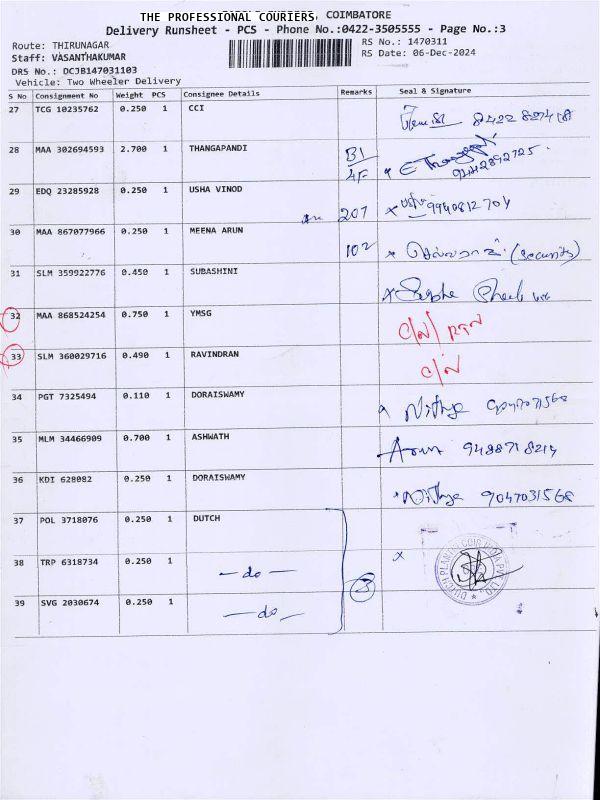 THE PROFESSIONAL COURIERS, COIMBATORE
Delivery Runsheet - PCS - Phone No.:0422-3505555 - Page No.:3
Route: THIRUNAGAR
RS No.: 1470311
Staff: VASANTHAKUMAR
RS Date: 06-Dec-2024
DRS No.: DCJB147031103
Vehicle: Two Wheeler Delivery
S No Consignment No Weight PCS Consignee Details Remarks Seal & Signature
27 TCG 10235762 0.250 1 CCI
28 MAA 302694593 2.700 1 THANGAPANDI B1/4F
29 EDQ 23285928 0.250 1 USHA VINOD 207 9940812704
30 MAA 867077966 0.250 1 MEENA ARUN 102 (Security)
31 SLM 359922776 0.450 1 SUBASHINI
32 MAA 868524254 0.750 1 YMSG C/N RTN
33 SLM 360029716 0.490 1 RAVINDRAN C/N
34 PGT 7325494 0.110 1 DORAISWAMY Nithya
35 MLM 34466909 0.700 1 ASHWATH Arun
36 KDI 628082 0.250 1 DORAISWAMY Nithya 9047031568
37 POL 3718076 0.250 1 DUTCH
38 TRP 6318734 0.250 1 — do — 3 x
39 SVG 2030674 0.250 1 — do —